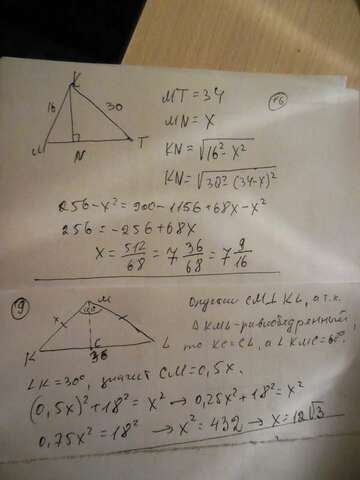 K
16
30
M
N
T
MT = 34
76
MN = x
KN = √16² - x²
KN = √30² - (34-x)²
256 - x² = 900 - 1156 + 68x - x²
256 = -256 + 68x
x = 512/68 = 7 36/68 = 7 9/16
9
M
120°
x
K
C
36
L
Опустим CM ⊥ KL, а т.к.
Δ KML - равнобедренный,
то KC = CL, а ∠ KMC = 60°.
∠K = 30°, значит CM = 0,5x.
(0,5x)² + 18² = x² → 0,25x² + 18² = x²
0,75x² = 18² → x² = 432 → x = 12√3